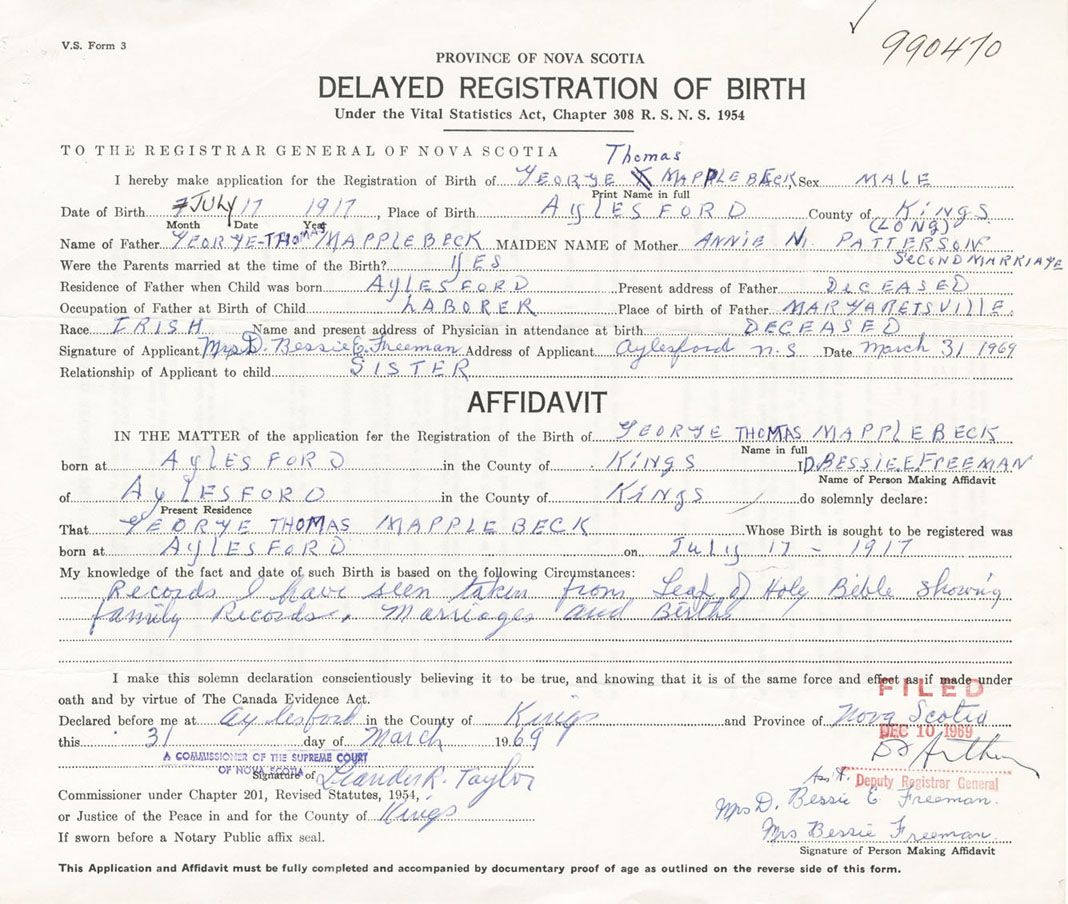 V.S. Form 3
990470
PROVINCE OF NOVA SCOTIA
DELAYED REGISTRATION OF BIRTH
Under the Vital Statistics Act, Chapter 308 R. S. N. S. 1954
TO THE REGISTRAR GENERAL OF NOVA SCOTIA
Thomas
I hereby make application for the Registration of Birth of GEORGE MAPPLEBECK Sex MALE
Print Name in full
Date of Birth 7 JULY 17 1917, Place of Birth AYLESFORD County of KINGS
Month Date Year
(LONG)
Name of Father GEORGE-THOMAS MAPPLEBECK MAIDEN NAME of Mother ANNIE N. PATTERSON
SECOND MARRIAGE
Were the Parents married at the time of the Birth? YES
Residence of Father when Child was born AYLESFORD Present address of Father DECEASED
Occupation of Father at Birth of Child LABORER Place of birth of Father MARGARETSVILLE.
Race IRISH Name and present address of Physician in attendance at birth DECEASED
Signature of Applicant Mrs D. Bessie E. Freeman Address of Applicant Aylesford N.S Date March 31 1969
Relationship of Applicant to child SISTER
AFFIDAVIT
IN THE MATTER of the application for the Registration of the Birth of GEORGE THOMAS MAPPLEBECK
Name in full
born at AYLESFORD in the County of KINGS I D. BESSIE. E. FREEMAN
Name of Person Making Affidavit
of AYLESFORD in the County of KINGS do solemnly declare:
Present Residence
That GEORGE THOMAS MAPPLEBECK Whose Birth is sought to be registered was
born at AYLESFORD on July 17 - 1917
My knowledge of the fact and date of such Birth is based on the following Circumstances:
Records I have seen taken from Leaf of Holy Bible showing
family Records. Marriages and Births
I make this solemn declaration conscientiously believing it to be true, and knowing that it is of the same force and effect as if made under
oath and by virtue of The Canada Evidence Act.
FILED
Declared before me at Aylesford in the County of Kings and Province of Nova Scotia
DEC 10 1969
this 31 day of March 1969
A COMMISSIONER OF THE SUPREME COURT
OF NOVA SCOTIA
Signature of Leander R. Taylor
Ass't. Deputy Registrar General
Commissioner under Chapter 201, Revised Statutes, 1954,
Mrs D. Bessie E Freeman.
or Justice of the Peace in and for the County of Kings
Mrs Bessie Freeman.
If sworn before a Notary Public affix seal.
Signature of Person Making Affidavit
This Application and Affidavit must be fully completed and accompanied by documentary proof of age as outlined on the reverse side of this form.